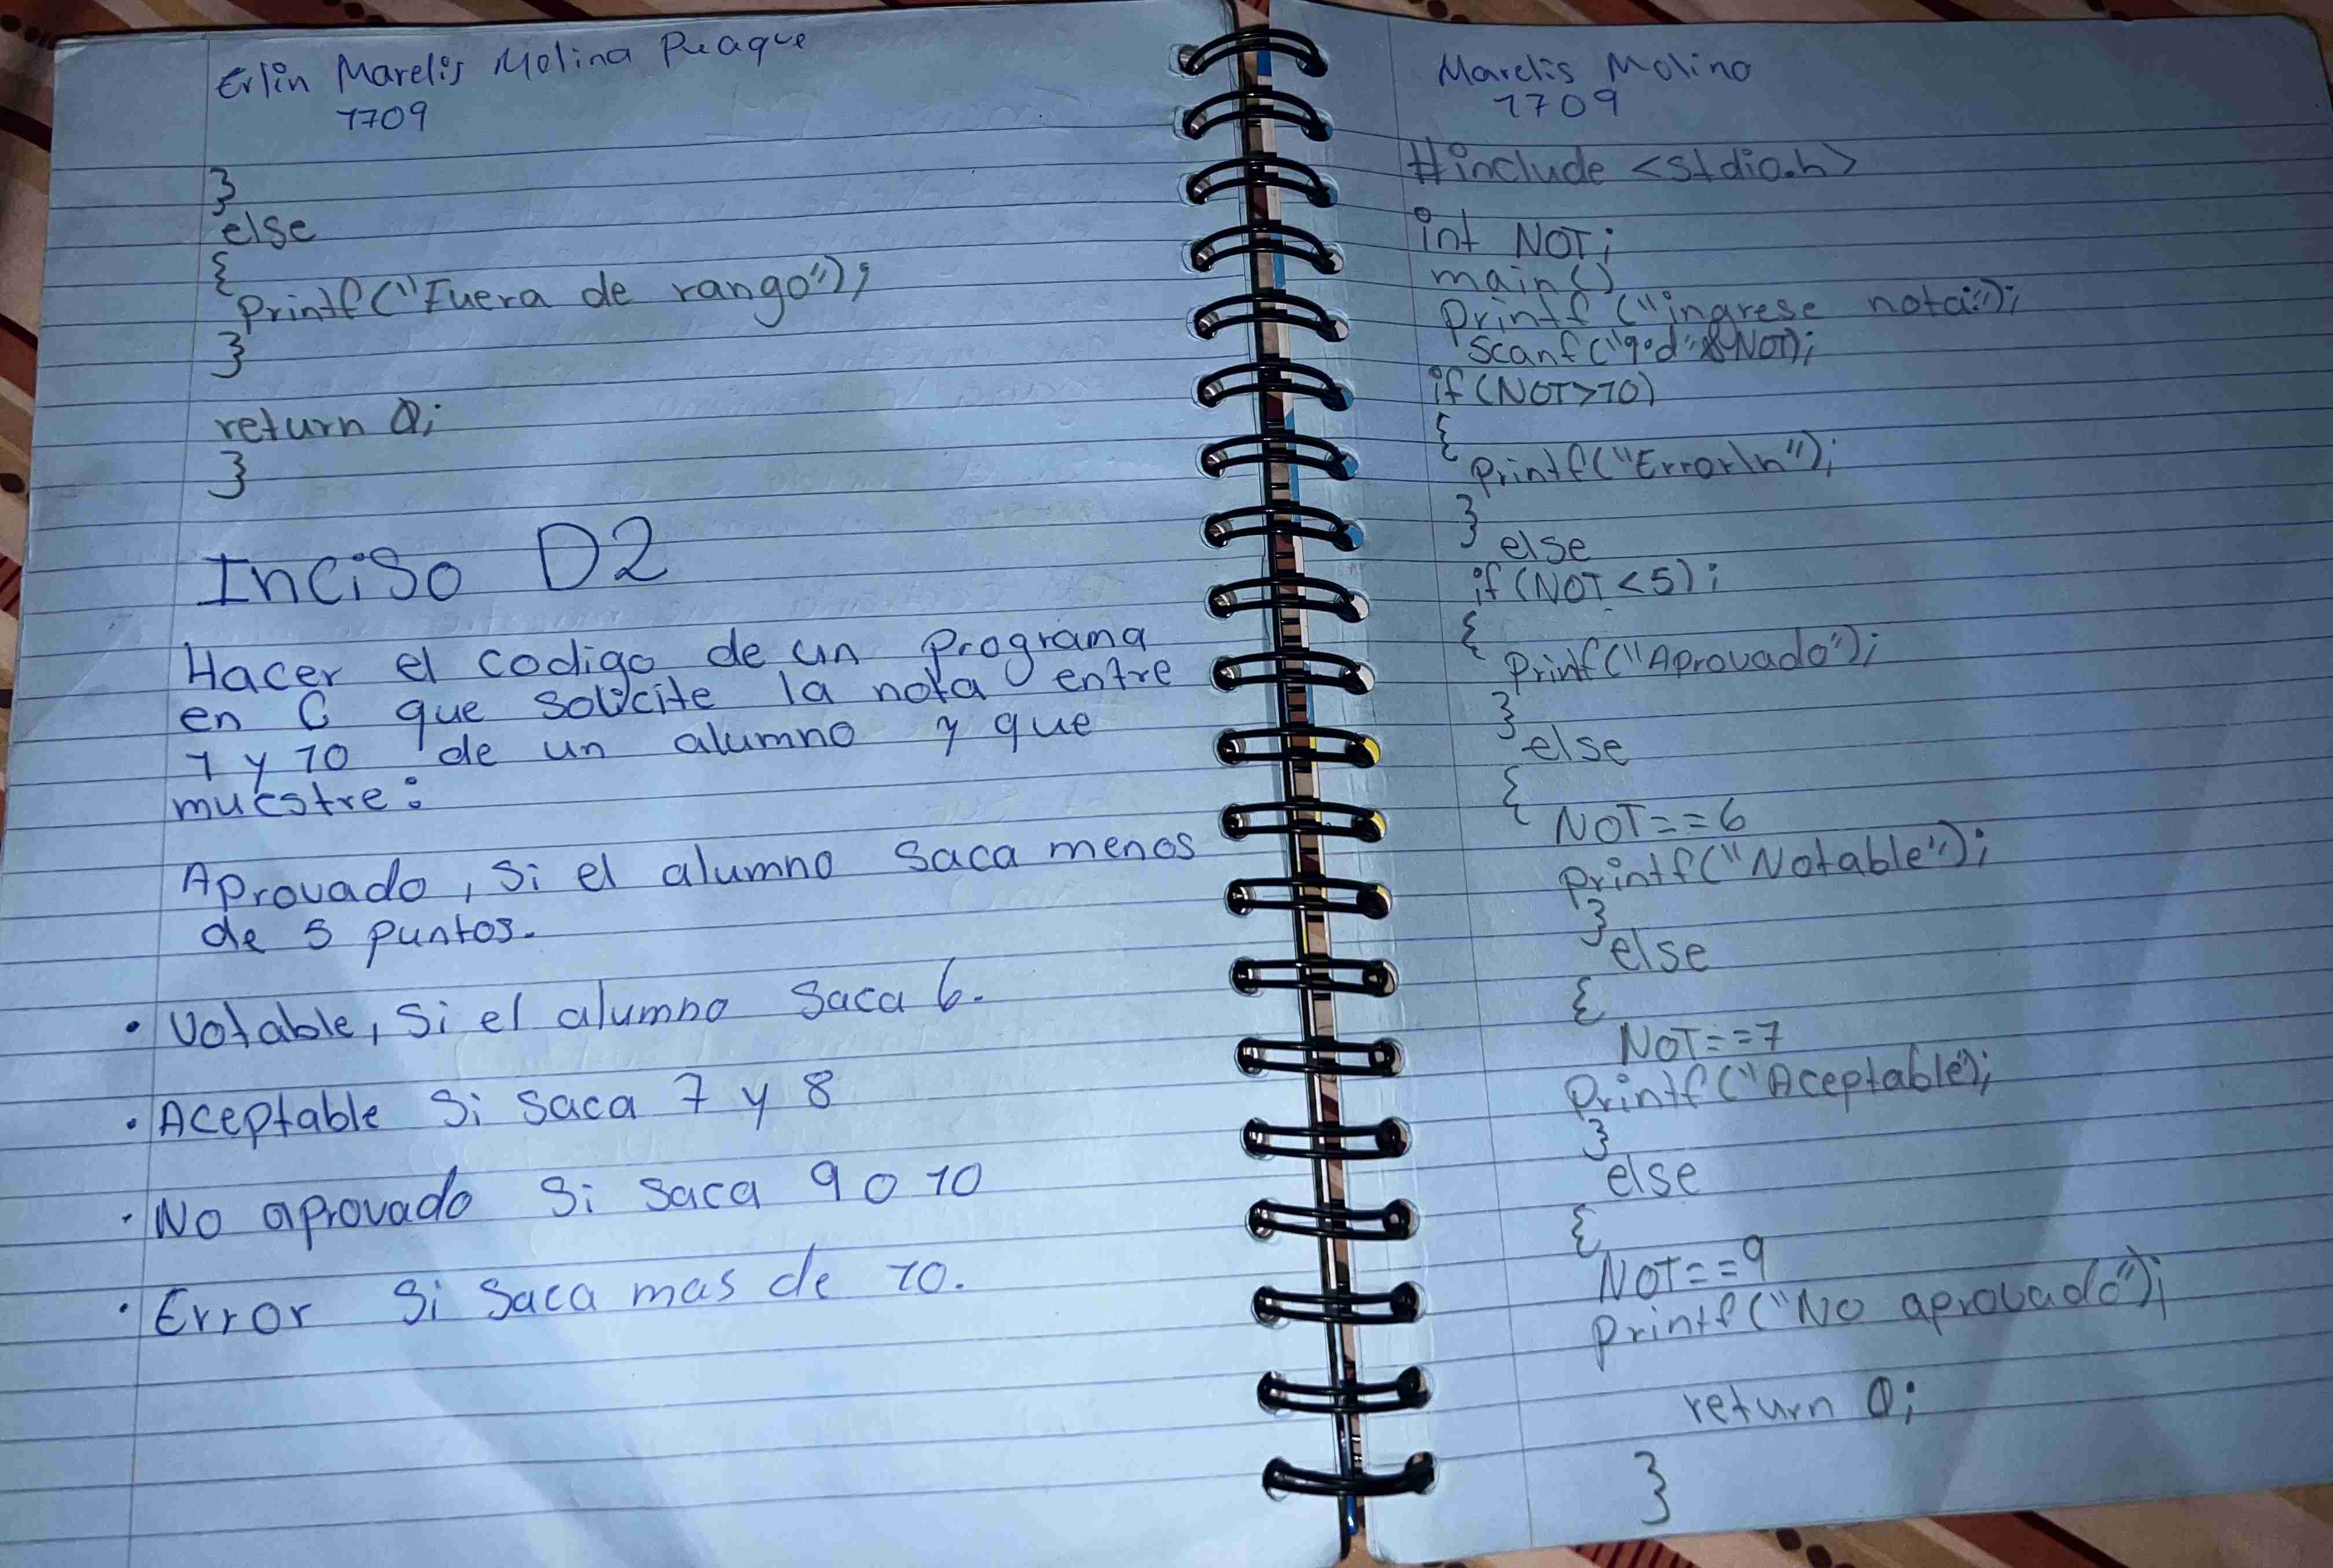 Erlin Marelis Molina Puaque
1709
}
else
{
printf("Fuera de rango");
}
return 0;
}
Inciso D2
Hacer el codigo de un programa
en C que solicite la nota entre
1 y 10 de un alumno y que
muestre:
Aprovado, si el alumno saca menos
de 5 puntos.
• Votable, si el alumno saca 6.
• Aceptable si saca 7 y 8
• No aprovado si saca 9 o 10
• Error si saca mas de 10.
Marelis Molina
1709
#include <stdio.h>
int NOT;
main()
printf ("ingrese nota:");
scanf("%d"&NOT);
if(NOT>10)
{
printf("Error\n");
}
else
if(NOT<5);
{
printf("Aprovado");
}
else
{
NOT==6
printf("Notable");
}
else
{
NOT==7
printf("Aceptable");
}
else
{
NOT==9
printf("No aprovado");
return 0;
}